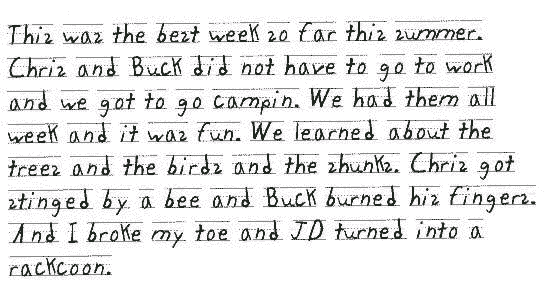 This was the best week so far this summer.
Chris and Buck did not have to go to work
and we got to go campin. We had them all
week and it was fun. We learned about the
trees and the birds and the shunks. Chris got
stinged by a bee and Buck burned his fingers.
And I broke my toe and JD turned into a
rackcoon.